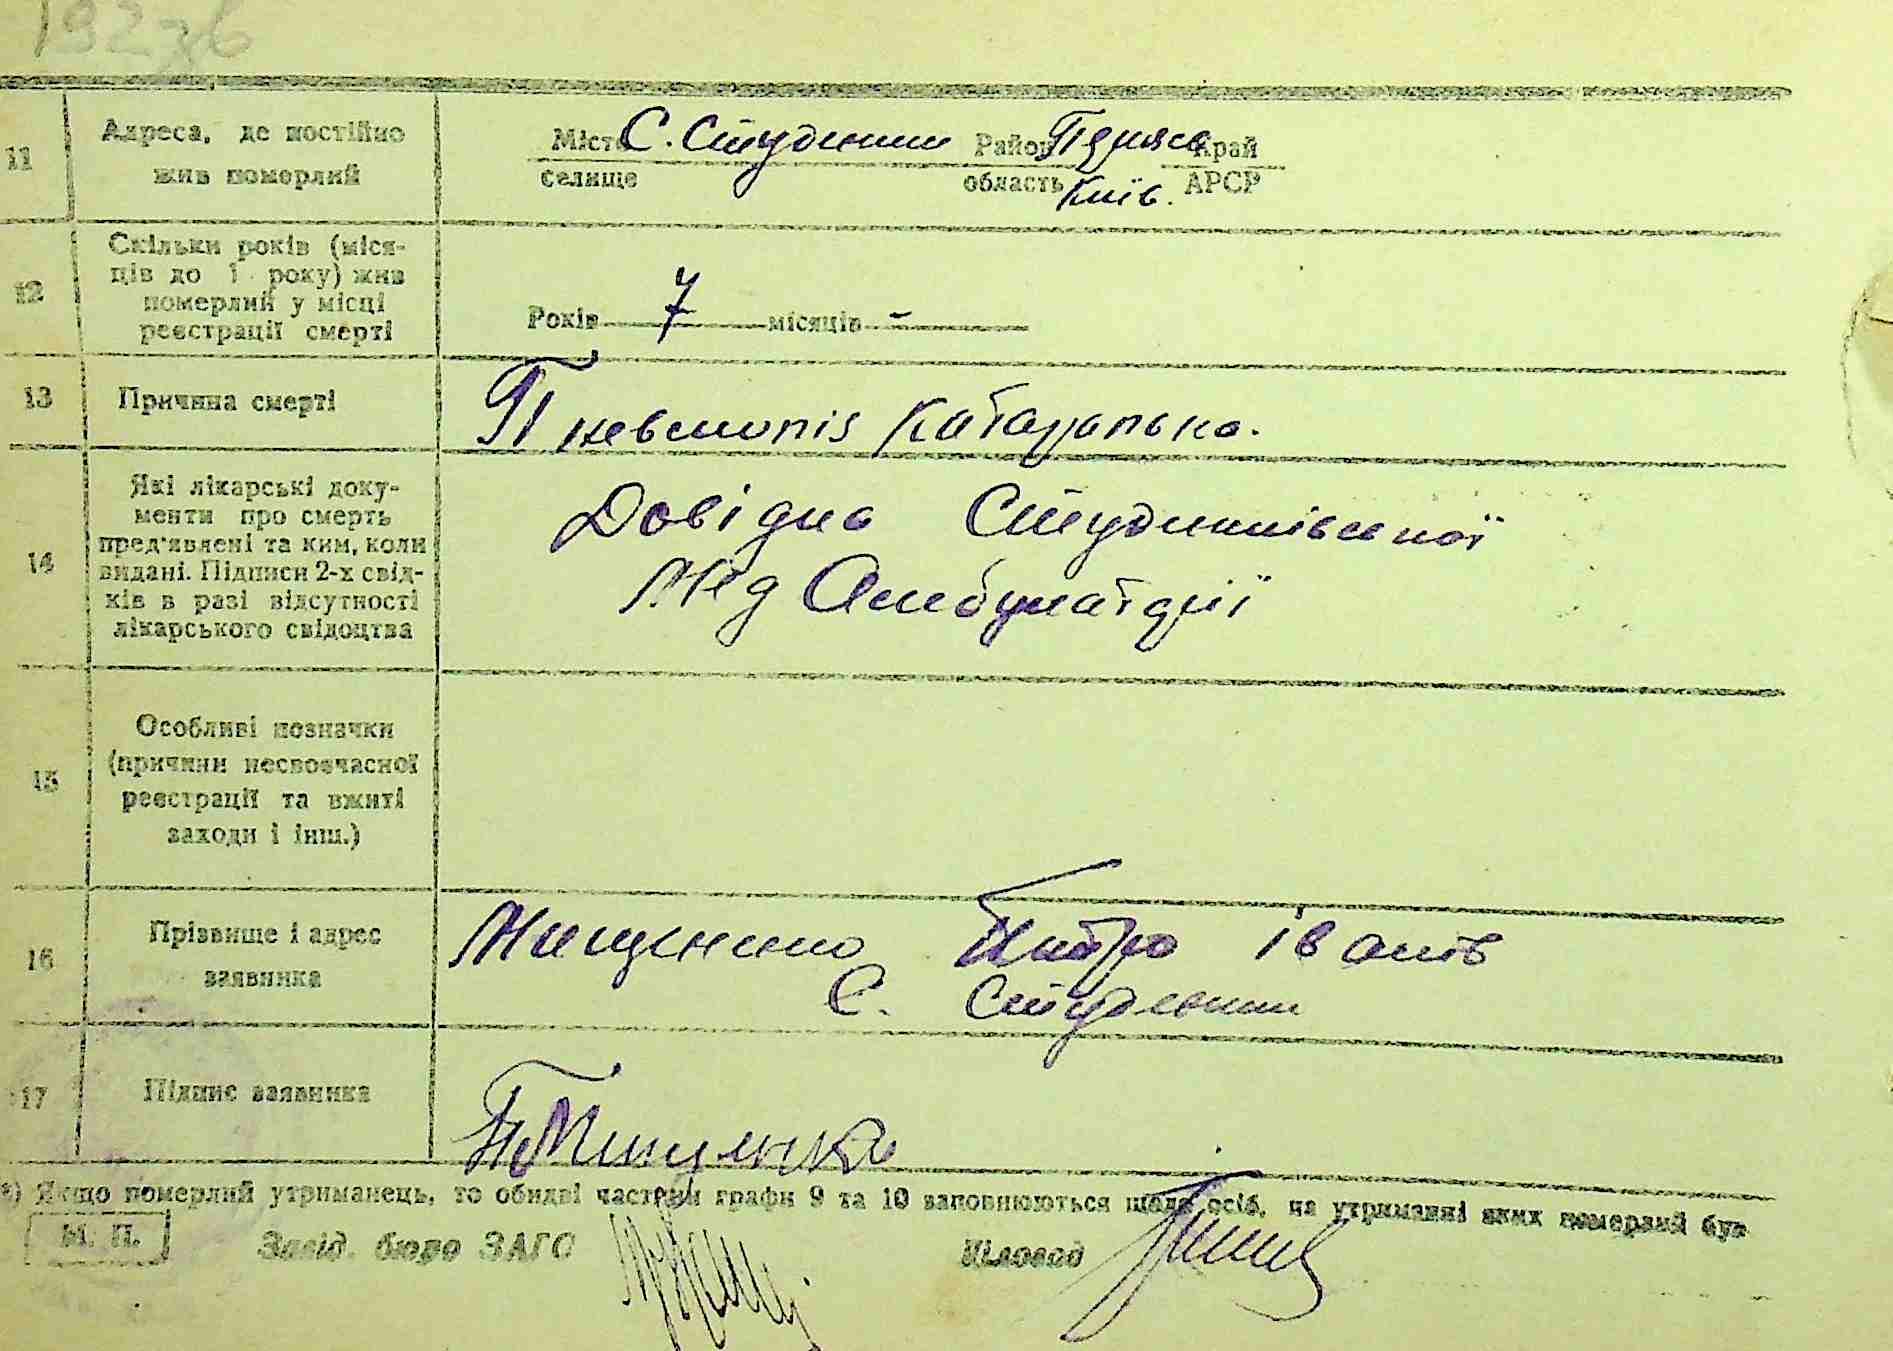 11 Адреса, де постійно жив померлий
Місто С. Студеники Район Переясл Край
селище область Київ. АРСР
12 Скільки років (міся-
ців до 1 року) жив
померлий у місці
реєстрації смерті
Років 7 місяців -
13 Причина смерті
Пневмонія катаральна.
14 Які лікарські доку-
менти про смерть
пред'явлені та ким, коли
видані. Підписи 2-х свід-
ків в разі відсутності
лікарського свідоцтва
Довідка Студениківської
Мед Амбулаторії
15 Особливі позначки
(причини несвоєчасної
реєстрації та вжиті
заходи і інш.)
16 Прізвище і адрес
заявника
Мищенко Петро Іванів
С. Студеники
17 Підпис заявника
П Мищенко
*) Якщо померлий утриманець, то обидві частини графи 9 та 10 заповнюються щодо осіб, на утриманні яких померлий був
М. П. Завід. бюро ЗАГС Діловод